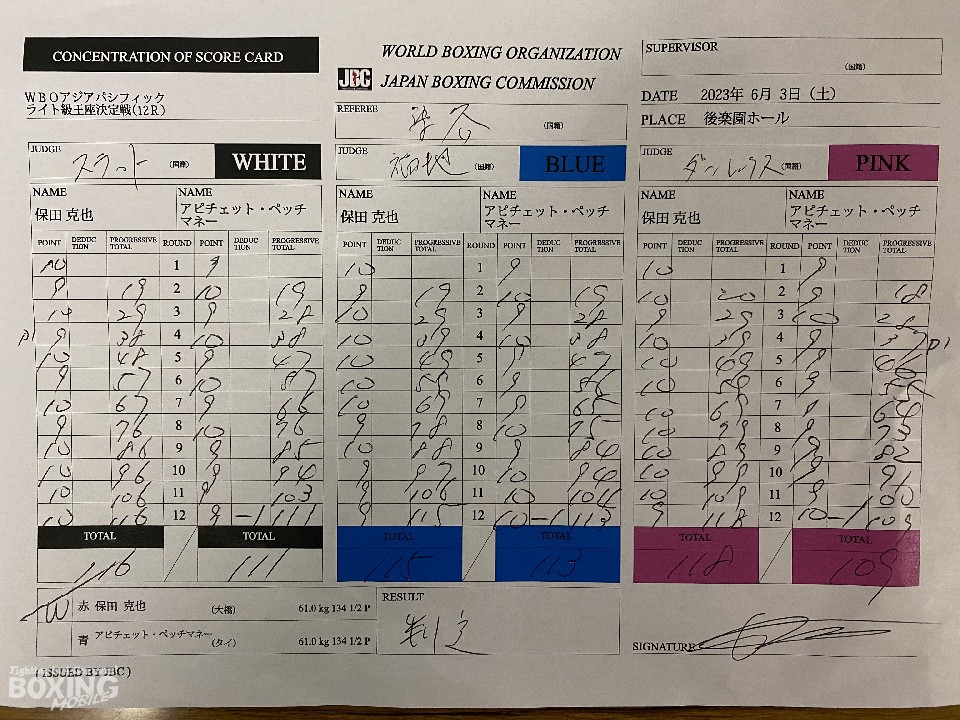 CONCENTRATION OF SCORE CARD
WORLD BOXING ORGANIZATION
JBC JAPAN BOXING COMMISSION
SUPERVISOR
(国籍)
WBOアジアパシフィック
ライト級王座決定戦(12R)
DATE 2023年 6月 3日 (土)
PLACE 後楽園ホール
REFEREE (国籍)
JUDGE (国籍) WHITE
JUDGE 福地 (国籍) BLUE
JUDGE (国籍) PINK
NAME NAME NAME NAME NAME NAME
保田 克也 アピチェット・ペッチマネー 保田 克也 アピチェット・ペッチマネー 保田 克也 アピチェット・ペッチマネー
POINT DEDUCTION PROGRESSIVE TOTAL ROUND POINT DEDUCTION PROGRESSIVE TOTAL POINT DEDUCTION PROGRESSIVE TOTAL ROUND POINT DEDUCTION PROGRESSIVE TOTAL POINT DEDUCTION PROGRESSIVE TOTAL ROUND POINT DEDUCTION PROGRESSIVE TOTAL
10 1 9 10 1 9 10 1 9
9 19 2 10 19 9 19 2 10 19 10 20 2 9 18
29 3 9 28 10 29 3 9 28 9 29 3 10 28
9 38 4 10 38 10 39 4 9 10 39 4 9 37
10 48 5 9 47 10 49 5 47 10 49 5 9 46
9 57 6 10 57 9 58 6 10 6 9
10 67 7 9 66 10 7 9 10 7 9 64
9 76 8 10 76 9 78 8 10 75 10 8 9 73
10 86 9 9 85 10 88 9 9 84 10 89 9 9 82
10 96 10 9 94 9 97 10 10 94 10 10 9 91
10 106 11 9 103 9 106 11 10 104 10 11 9 100
10 116 12 9 -1 111 9 115 12 10 -1 113 9 118 12 10 -1 109
TOTAL TOTAL TOTAL TOTAL TOTAL TOTAL
116 111 115 113 118 109
W 赤 保田 克也 (大橋) 61.0 kg 134 1/2 P
青 アピチェット・ペッチマネー (タイ) 61.0 kg 134 1/2 P
RESULT
判定
SIGNATURE
(ISSUED BY JBC)
BOXING
MOBILE